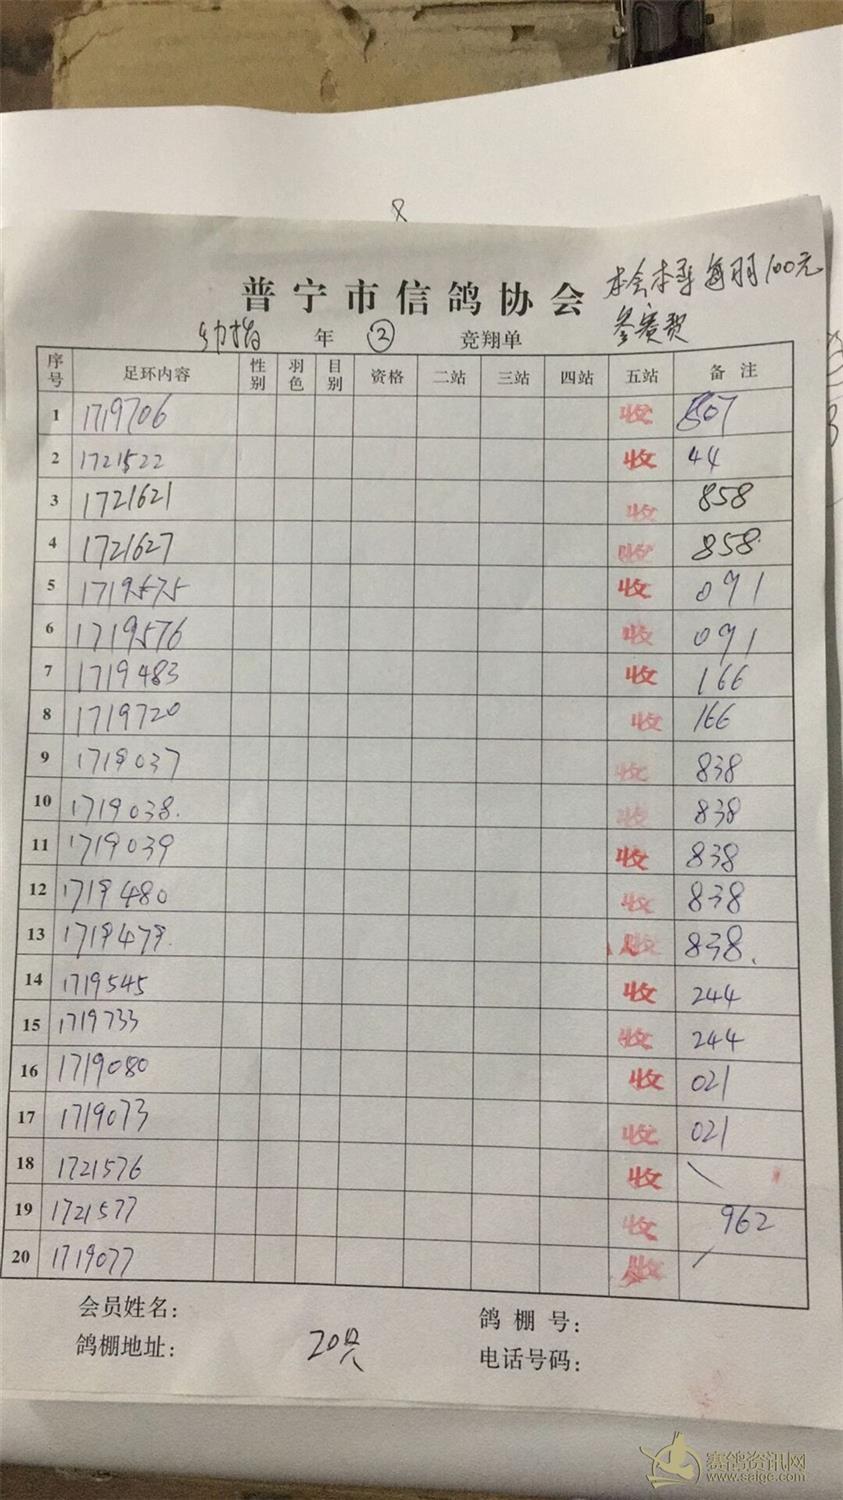 普宁市信鸽协会 本会本年每羽100元
年 ② 竞翔单 参赛费
序号 足环内容 性别 羽色 目别 资格 二站 三站 四站 五站 备注
1 1719706 收 807
2 1721522 收 44
3 1721621 收 858
4 1721627 收 858
5 1719575 收 091
6 1719576 收 091
7 1719483 收 166
8 1719720 收 166
9 1719037 收 838
10 1719038. 收 838
11 1719039 收 838
12 1719480 收 838
13 1719479. 收 838.
14 1719545 收 244
15 1719733 收 244
16 1719080 收 021
17 1719073 收 021
18 1721576 收 \
19 1721577 收 962
20 1719077 收 /
会员姓名: 鸽棚号:
鸽棚地址: 20只 电话号码:
赛鸽资讯网
www.saige.com